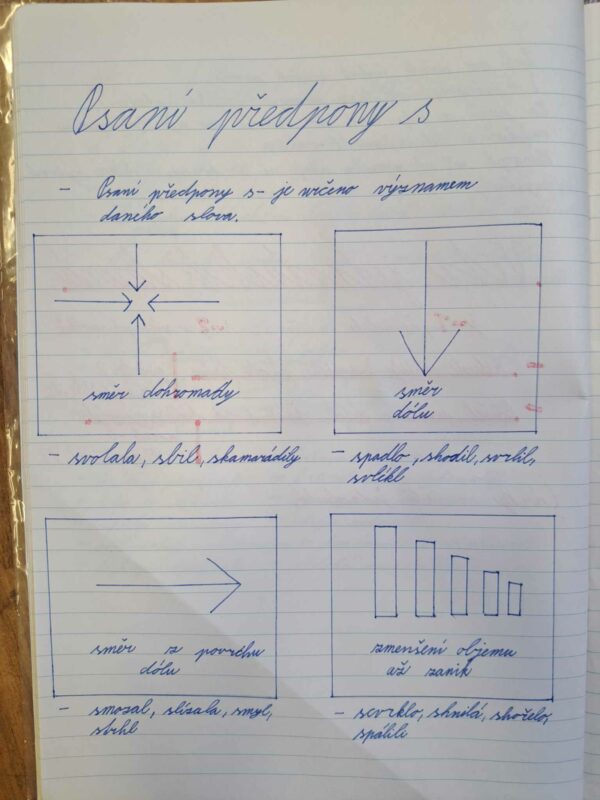 Psaní předpony s
- Psaní předpony s- je určeno významem
daného slova.
směr dohromady
- svolala, sbil, skamarádily
směr
dólu
- spadlo, shodil, svrhl,
svlékl
směr z povrchu
dólu
- smazal, slízala, smyl,
strhl
zmenšení objemu
až zanik
- scvrklo, shnilá, shořelo,
spálili